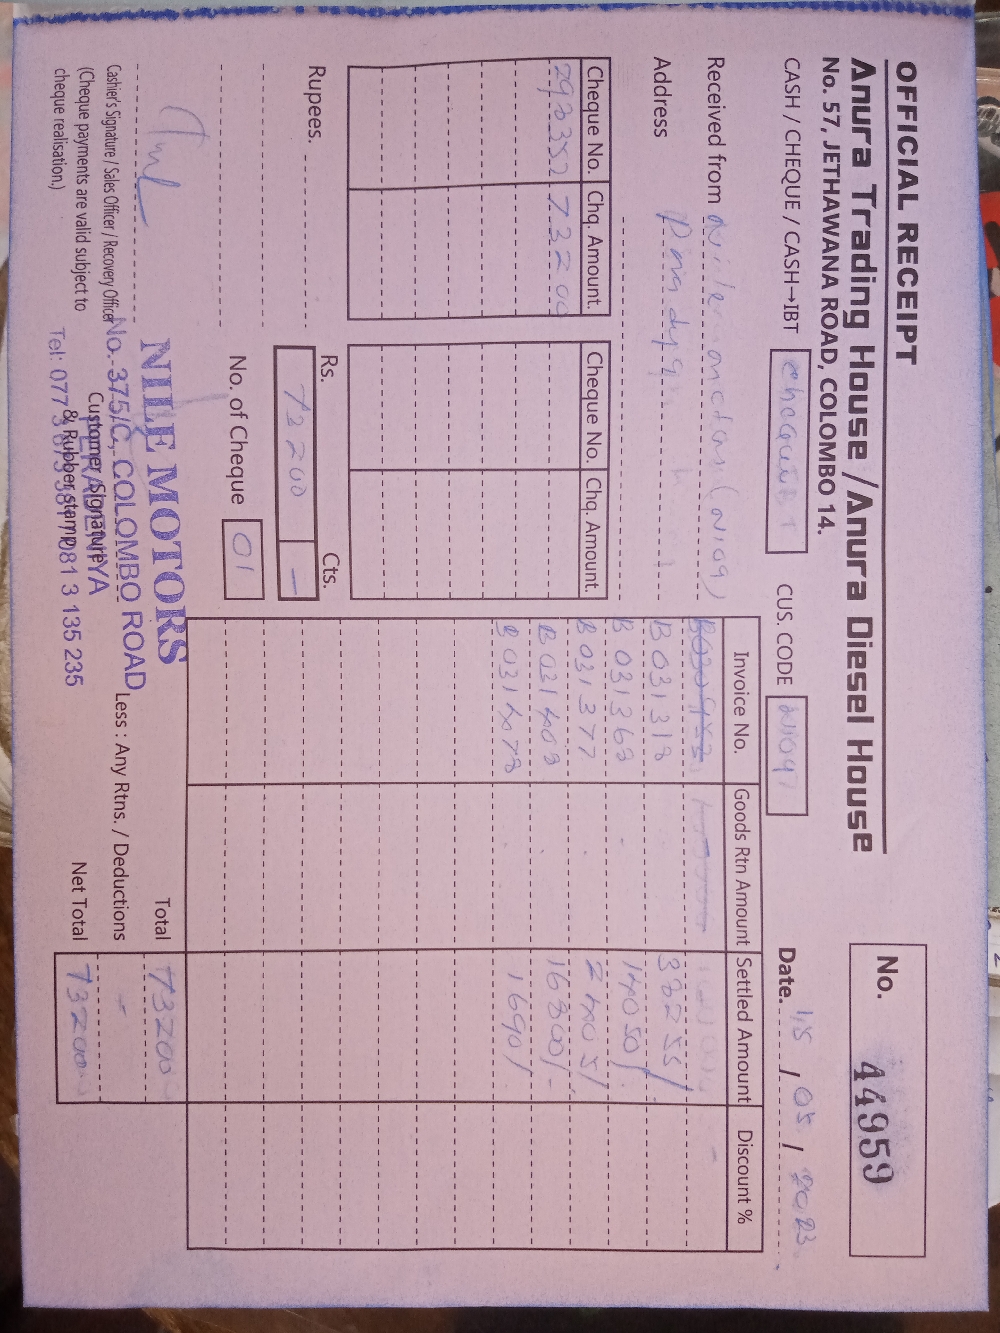 OFFICIAL RECEIPT
Anura Trading House / Anura Diesel House
No. 57, JETHAWANA ROAD, COLOMBO 14.
No. 44959
CASH / CHEQUE / CASH→IBT
CUS. CODE
Date. 15 / 05 / 2023
Received from
Address
Cheque No. Chq. Amount. Cheque No. Chq. Amount.
293352 73200
Rupees.
Rs. Cts.
73200 —
No. of Cheque 01
Invoice No. Goods Rtn Amount Settled Amount Discount %
B031318
B031368 14050/
B031377
B031408 16800/-
B031407B 1690/
Total 73200
Less : Any Rtns. / Deductions -
Net Total 73200
Cashier's Signature / Sales Officer / Recovery Officer
(Cheque payments are valid subject to
cheque realisation.)
Customer Signature
& Rubber stamp
NILE MOTORS
No.-375/C, COLOMBO ROAD